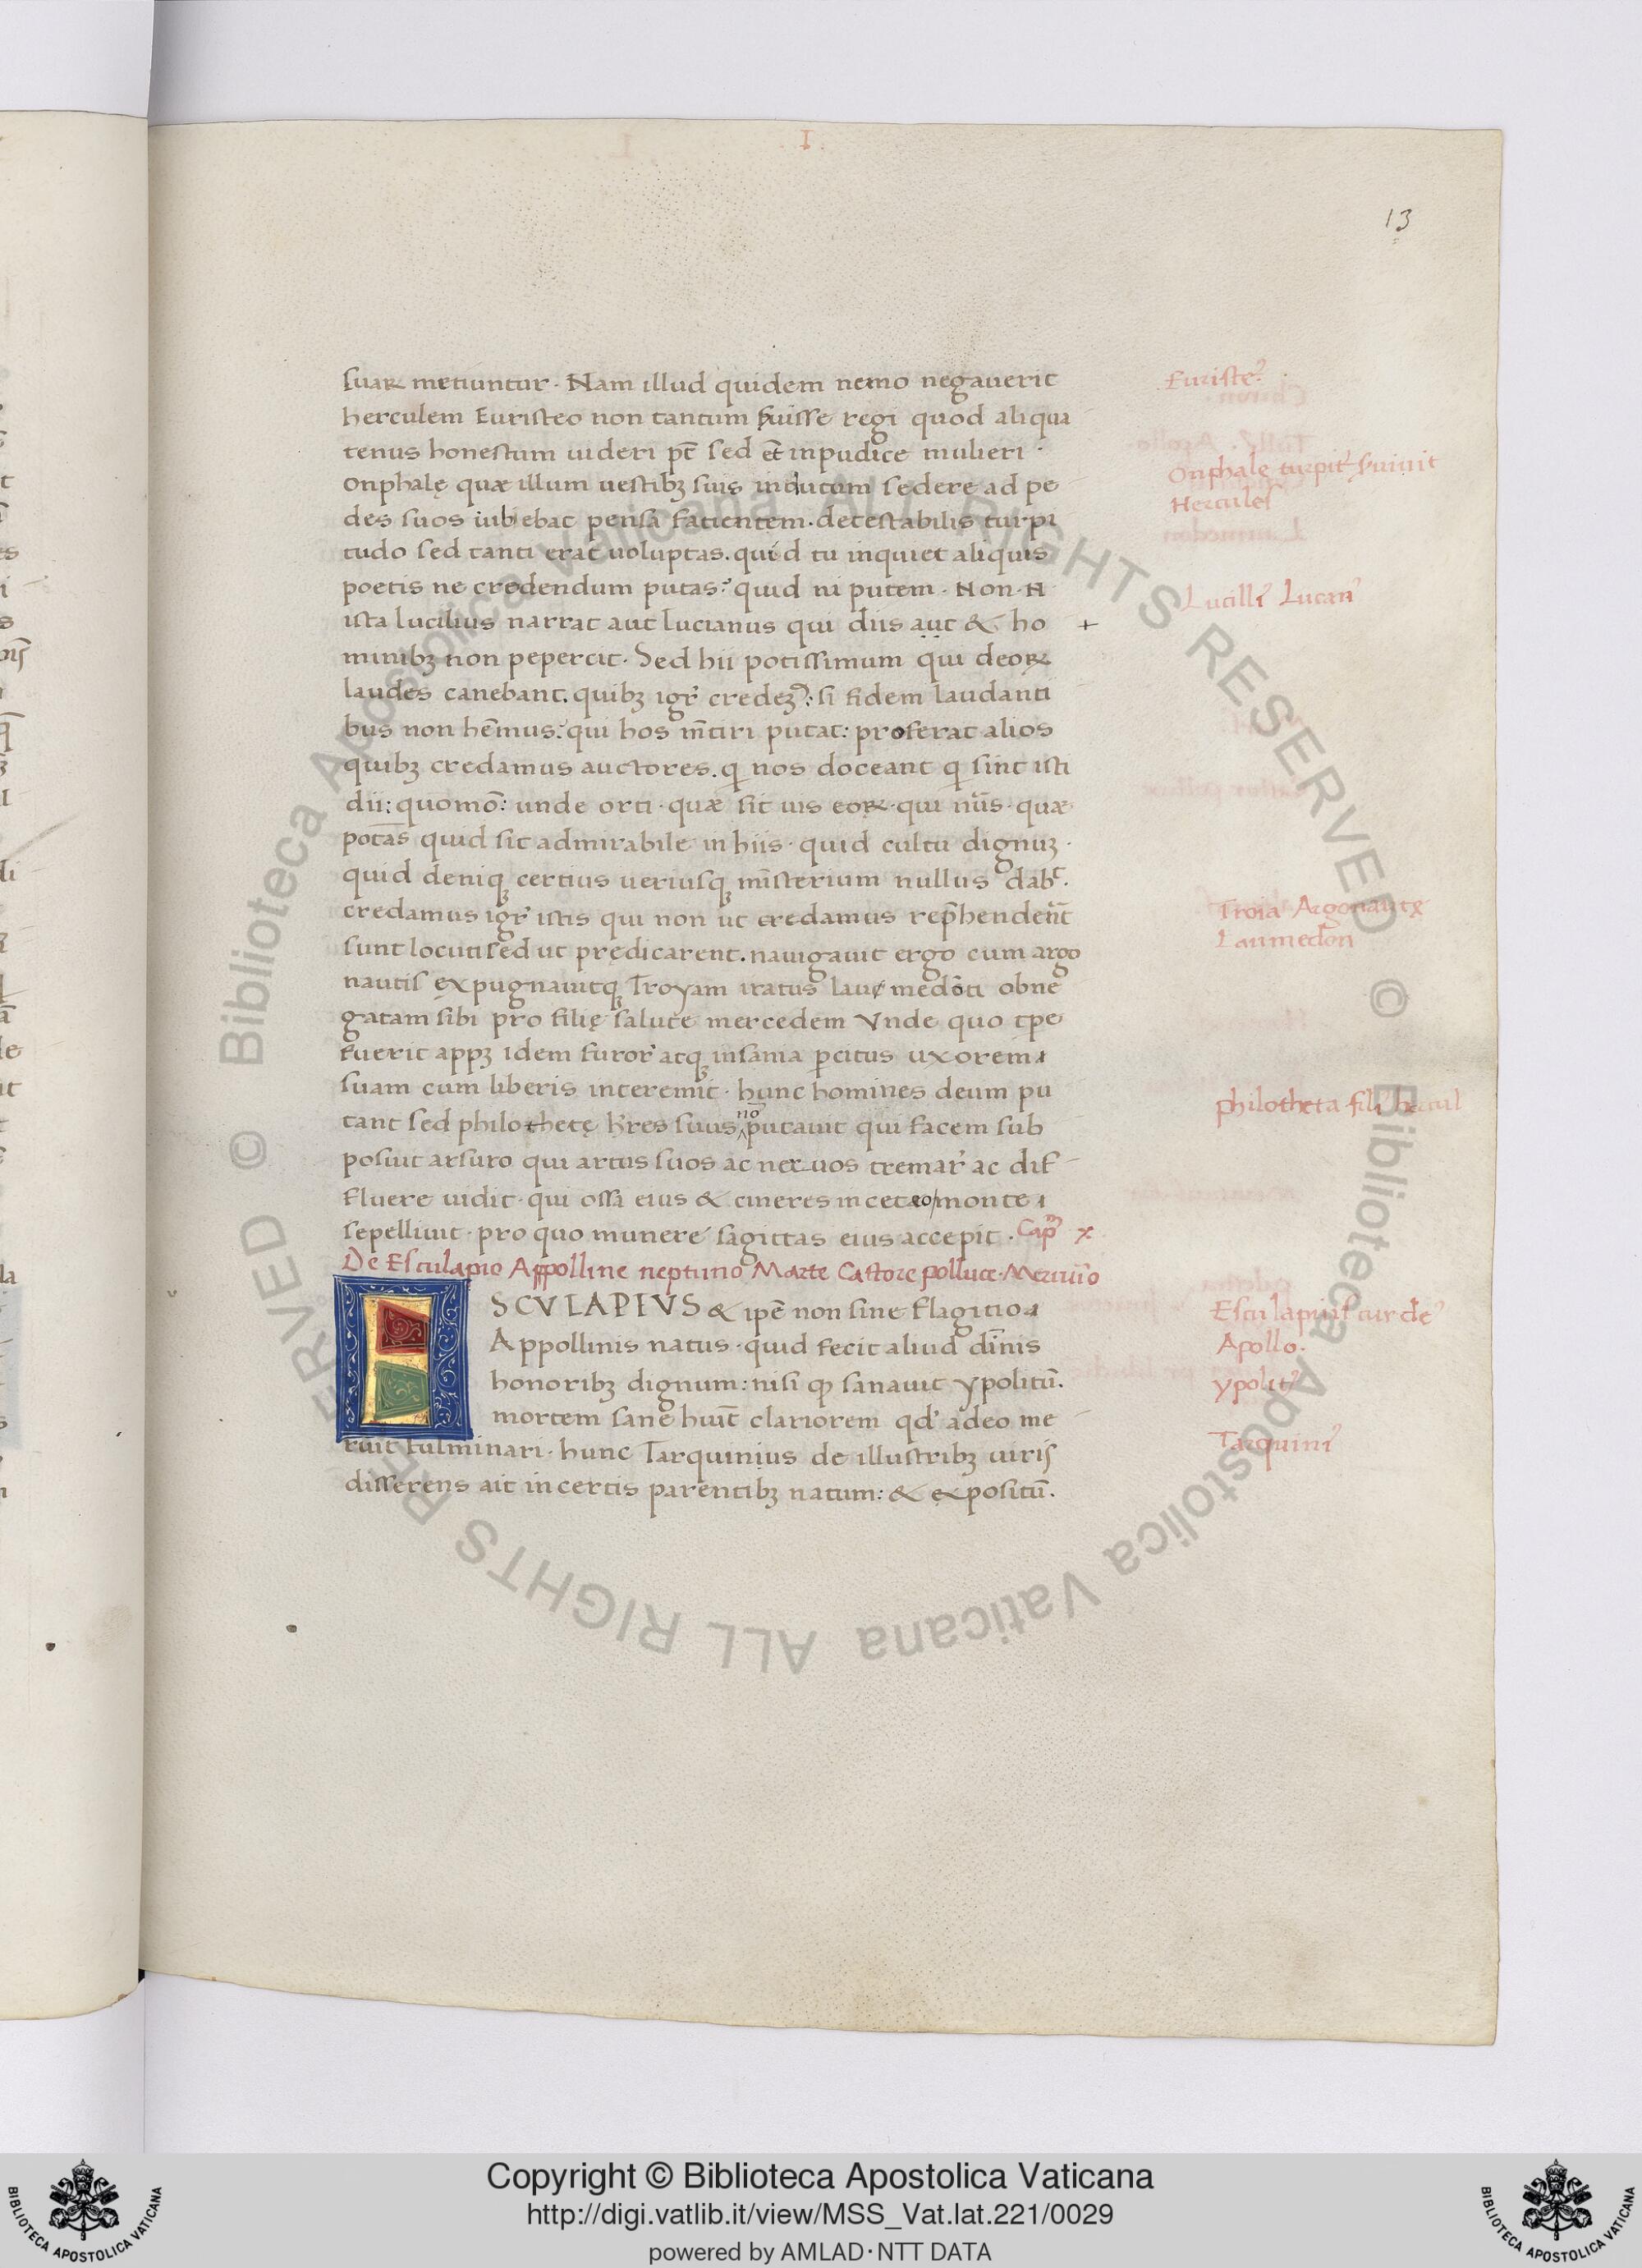 I.
13
suaꝝ metiuntur · Nam illud quidem nemo negauerit
herculem Euristeo non tantum seruisse regi quod aliqua
tenus honestum uideri pt̄ sed et̄ inpudice mulieri ·
Onphalę quæ illum uestibꝫ suis indutum sedere ad pe
des suos iubebat pensa facientem · detestabilis turpi
tudo sed tanti erat uoluptas. quid tu inquiet aliquis
poetis ne credendum putas? quid ni putem · Non · N
ista lucilius narrat aut lucianus qui diis aut & ho +
minibꝫ non pepercit · Sed hii potissimum qui deoꝝ
laudes canebant. quibꝫ igr̄ credeꝫ: si fidem laudanti
bus non hēmus: qui hos m̄tiri putat: proferat alios
quibꝫ credamus auctores. q nos doceant q sint isti
dii: quomō: unde orti · quæ sit uis eoꝝ · qui nūs · quæ
potās quid sit admirabile in hiis · quid cultu dignuꝫ ·
quid deniqꝫ certius ueriusqꝫ misterium nullus dabt̄.
credamus igr̄ istis qui non ut credamus rep̄hendent̄
sunt locuti sed ut prędicarent. nauigauit ergo cum argo
nautis expugnauitqꝫ Troyam iratus laumedōti obne
gatam sibi pro filię salute mercedem Vnde quo tp̄e
fuerit appꝫ idem furor̄ atqꝫ insania p̄citus uxorem
suam cum liberis interemit · hunc homines deum pu
tant sed philothetę h̄res suus nō putauit qui facem sub
posuit arsuro qui artus suos ac neruos cremar̄ ac dif
fluere uidit · qui ossa eius & cineres in oetaeo monte
sepelliuit · pro quo munere sagittas eius accepit · Capm̄ x
De Esculapio Appolline neptuno Marte Castore polluce · Mercuᵒio
ESCVLAPIVS & ipē non sine flagitio
Appollinis natus · quid fecit aliud diīnis
honoribꝫ dignum: nisi qꝫ sanauit ypolitū.
mortem sane huit̄ clariorem qd̄ adeo me
ruit fulminari · hunc Tarquinius de illustribꝫ uiris
disserens ait incertis parentibꝫ natum: & expositū.
Euriste⁹
Onphalę turpit̄ seruiuit
Hercules
Lucilli⁹ Lucan⁹
Troia Argonautę
Laumedon
philotheta fili⁹ hercul
Esculapius cur de⁹
Apollo.
ypolit⁹
Tarquini⁹
Copyright © Biblioteca Apostolica Vaticana
http://digi.vatlib.it/view/MSS_Vat.lat.221/0029
powered by AMLAD·NTT DATA
BIBLIOTECA APOSTOLICA VATICANA
BIBLIOTECA APOSTOLICA VATICANA
© Biblioteca Apostolica Vaticana ALL RIGHTS RESERVED
© Biblioteca Apostolica Vaticana ALL RIGHTS RESERVED